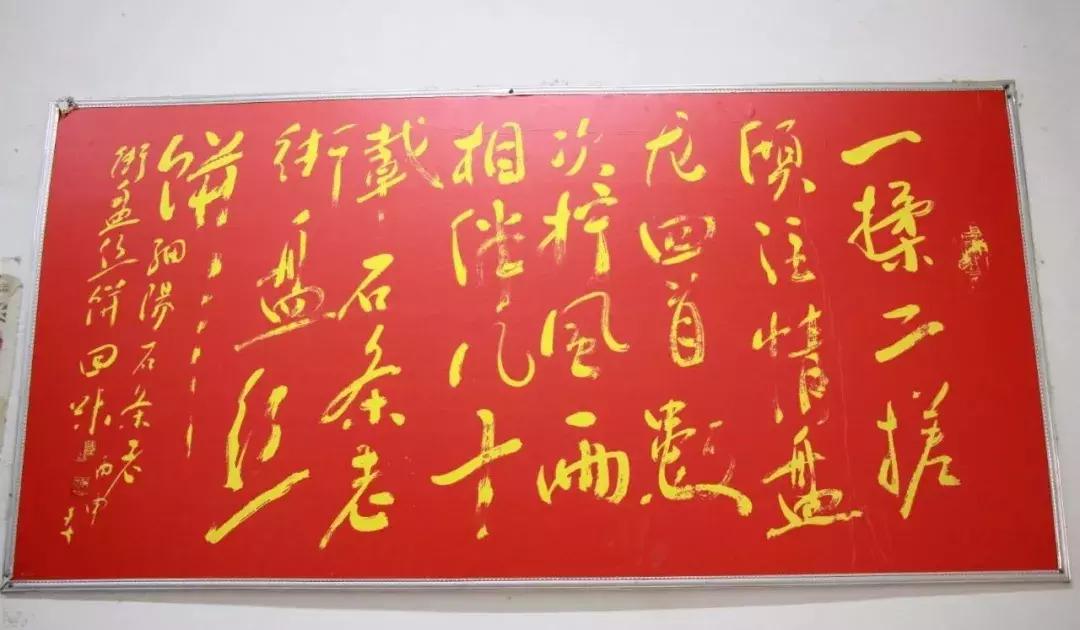 一揉二搓
倾注情盘
龙回首数
次拧风雨
相伴几十
载石条老
街盘丝
饼
细阳石条老
街盘丝饼回味
丙申